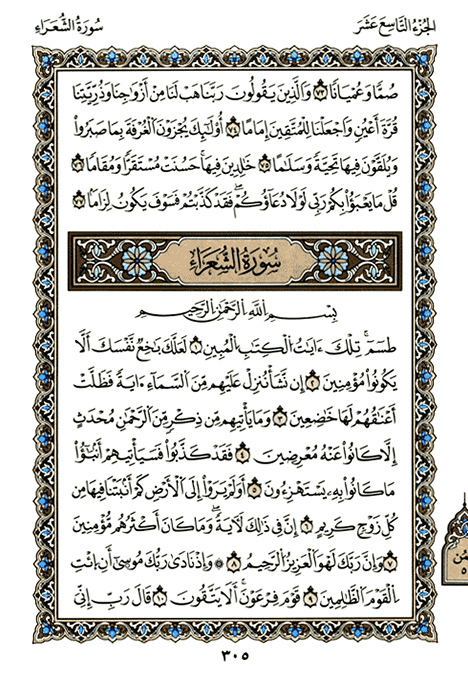 الجزء التاسع عشر
سورة الشعراء
صُمًّا وَعُمْيَانًا ٧٣ وَالَّذِينَ يَقُولُونَ رَبَّنَا هَبْ لَنَا مِنْ أَزْوَاجِنَا وَذُرِّيَّتِنَا
قُرَّةَ أَعْيُنٍ وَاجْعَلْنَا لِلْمُتَّقِينَ إِمَامًا ٧٤ أُوْلَٰٓئِكَ يُجْزَوْنَ الْغُرْفَةَ بِمَا صَبَرُواْ
وَيُلَقَّوْنَ فِيهَا تَحِيَّةً وَسَلَٰمًا ٧٥ خَٰلِدِينَ فِيهَا حَسُنَتْ مُسْتَقَرًّا وَمُقَامًا ٧٦
قُلْ مَا يَعْبَؤُاْ بِكُمْ رَبِّي لَوْلَا دُعَآؤُكُمْ ۖ فَقَدْ كَذَّبْتُمْ فَسَوْفَ يَكُونُ لِزَامًا ٧٧
سُورَةُ الشُّعَرَاءِ
بِسْمِ اللَّهِ الرَّحْمَٰنِ الرَّحِيمِ
طسٓمٓ ۚ تِلْكَ ءَايَٰتُ الْكِتَٰبِ الْمُبِينِ ١ لَعَلَّكَ بَٰخِعٌ نَّفْسَكَ أَلَّا
يَكُونُواْ مُؤْمِنِينَ ٢ إِن نَّشَأْ نُنَزِّلْ عَلَيْهِم مِّنَ السَّمَآءِ ءَايَةً فَظَلَّتْ
أَعْنَٰقُهُمْ لَهَا خَٰضِعِينَ ٣ وَمَا يَأْتِيهِم مِّن ذِكْرٍ مِّنَ الرَّحْمَٰنِ مُحْدَثٍ
إِلَّا كَانُواْ عَنْهُ مُعْرِضِينَ ٤ فَقَدْ كَذَّبُواْ فَسَيَأْتِيهِمْ أَنۢبَٰٓؤُاْ
مَا كَانُواْ بِهِۦ يَسْتَهْزِءُونَ ٥ أَوَلَمْ يَرَوْاْ إِلَى الْأَرْضِ كَمْ أَنۢبَتْنَا فِيهَا مِن
كُلِّ زَوْجٍ كَرِيمٍ ٦ إِنَّ فِي ذَٰلِكَ لَأٓيَةً ۖ وَمَا كَانَ أَكْثَرُهُم مُّؤْمِنِينَ
٧ وَإِنَّ رَبَّكَ لَهُوَ الْعَزِيزُ الرَّحِيمُ ٨ ۞ وَإِذْ نَادَىٰ رَبُّكَ مُوسَىٰٓ أَنِ ائْتِ
الْقَوْمَ الظَّٰلِمِينَ ٩ قَوْمَ فِرْعَوْنَ ۚ أَلَا يَتَّقُونَ ١٠ قَالَ رَبِّ إِنِّيٓ
٣٠٥